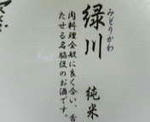 みどりかわ
緑川 純米
肉料理全般に良く合い、香
たせる名脇役のお酒です。